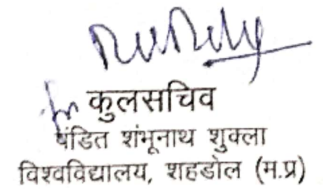 कुलसचिव
पंडित शंभूनाथ शुक्ला
विश्वविद्यालय, शहडोल (म.प्र)